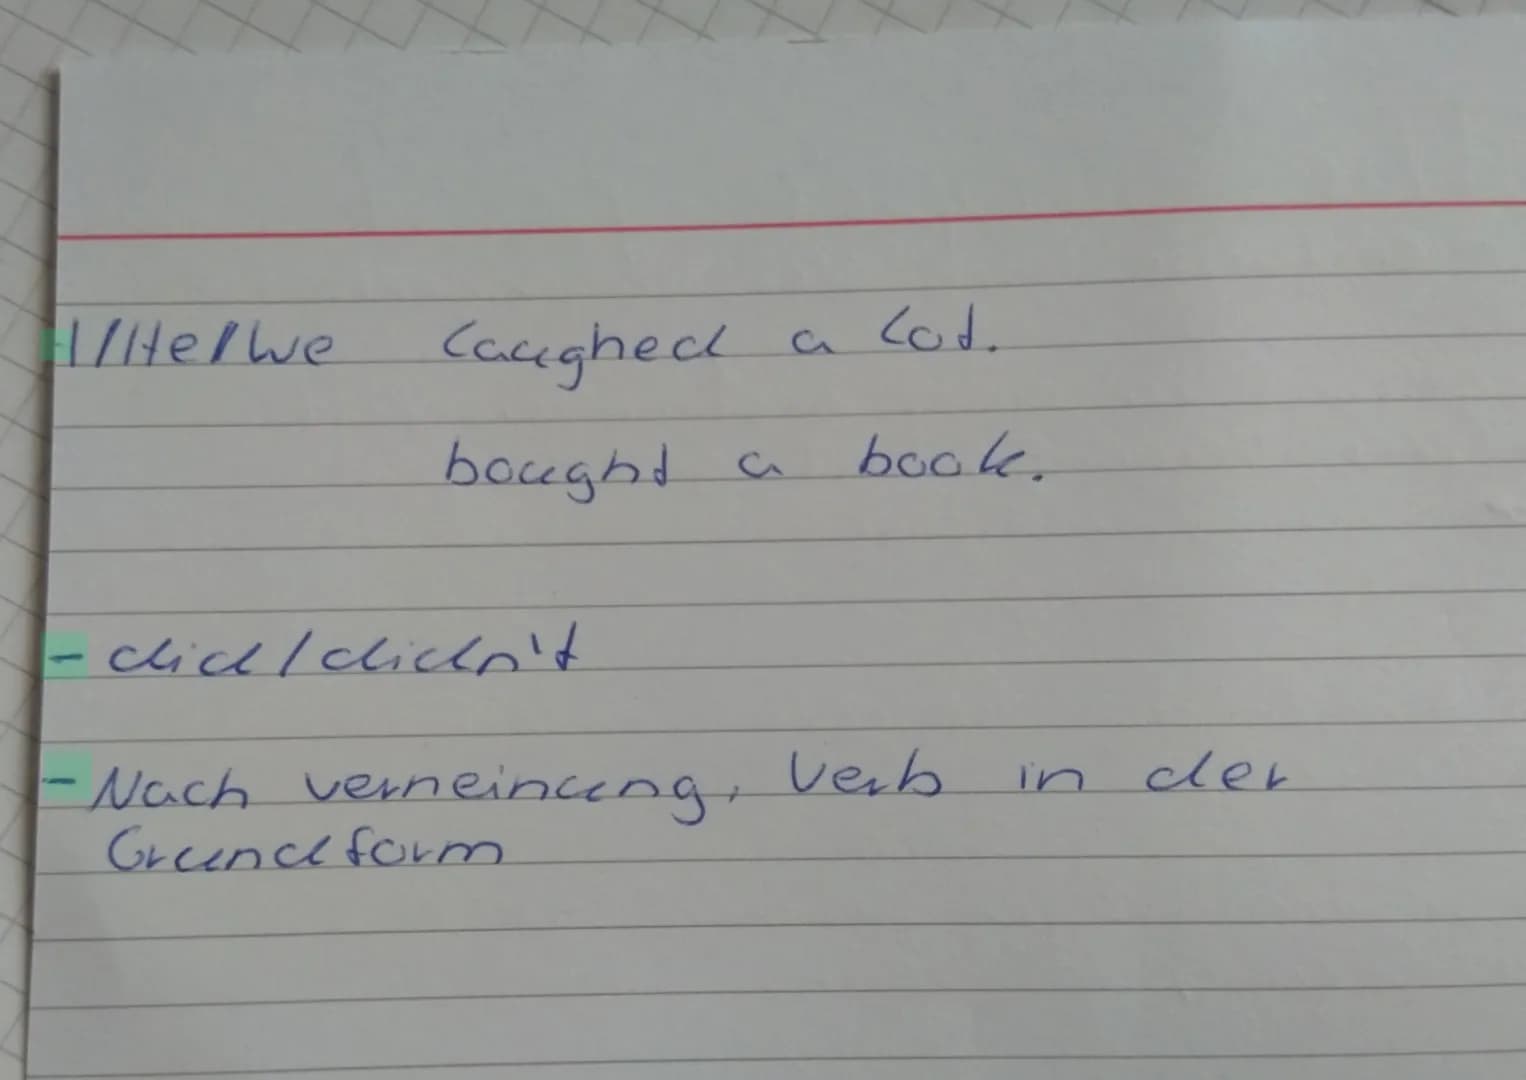 - I/He/We laughed a lot.
bought a book.
- did/didn't
- Nach verneinung, Verb in der
Grundform